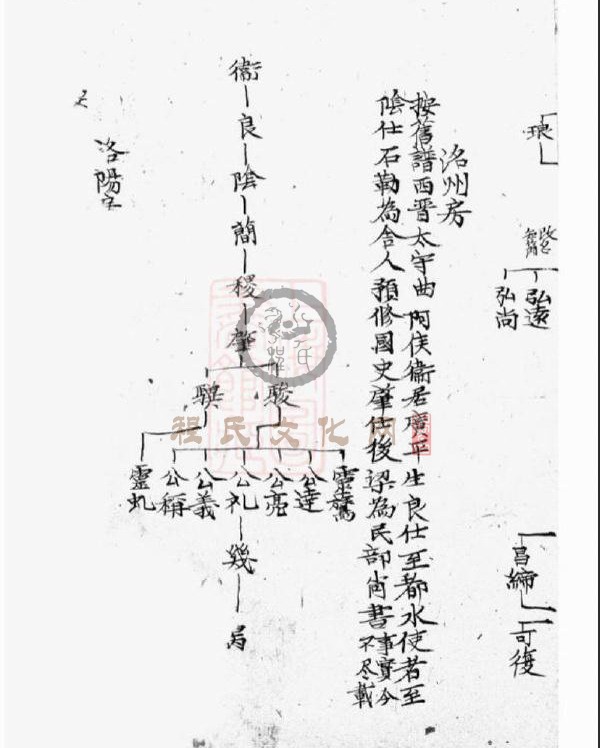 琅
弘遠
弘尚
昌締
可復
洺州房
按舊譜西晋太守曲阿侯衞居廣平生良仕至都水使者至
陰仕石勒為舍人預修國史肇仕後梁為民部尚書事實今
不尽載
衞 良 陰 蕑 稷 肇
駿
騏
靈鶩
公達
公亮
公礼 幾 昺
公義
公稱
靈虬
洛陽
程氏文化网